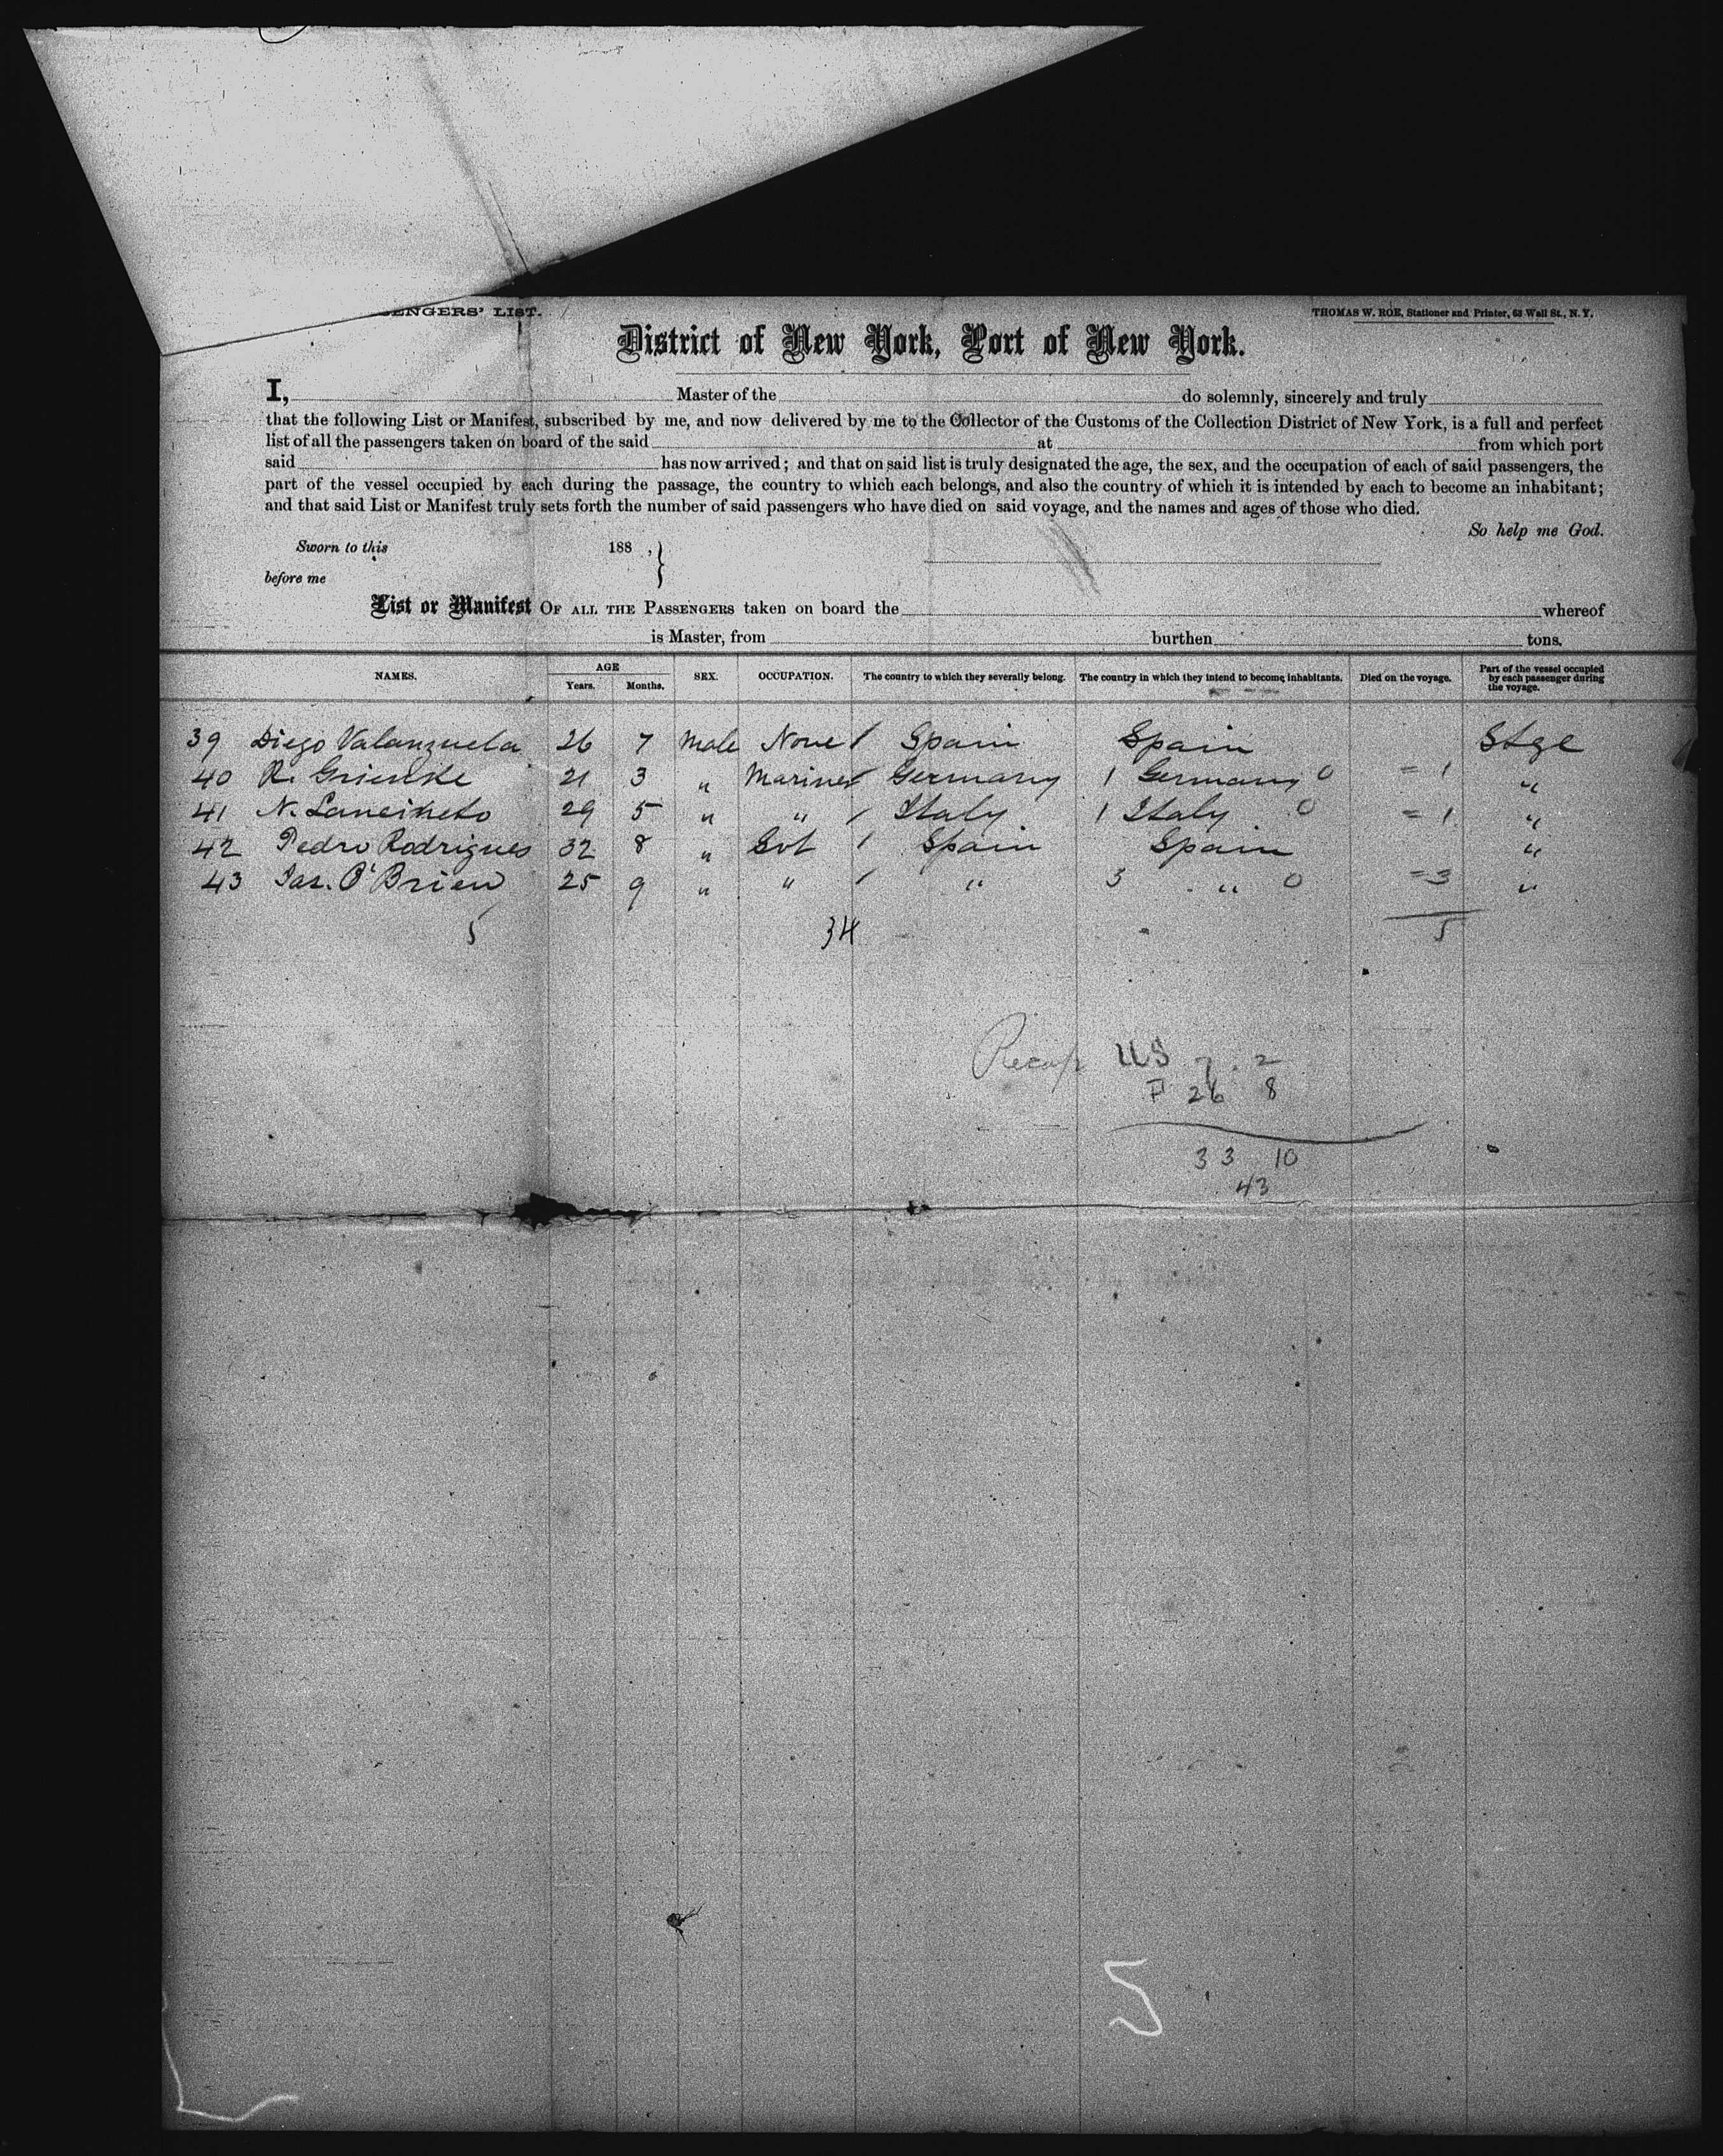 ENGERS' LIST.
THOMAS W. ROE, Stationer and Printer, 63 Wall St., N. Y.
District of New York, Port of New York.
I, Master of the do solemnly, sincerely and truly
that the following List or Manifest, subscribed by me, and now delivered by me to the Collector of the Customs of the Collection District of New York, is a full and perfect
list of all the passengers taken on board of the said at from which port
said has now arrived; and that on said list is truly designated the age, the sex, and the occupation of each of said passengers, the
part of the vessel occupied by each during the passage, the country to which each belongs, and also the country of which it is intended by each to become an inhabitant;
and that said List or Manifest truly sets forth the number of said passengers who have died on said voyage, and the names and ages of those who died.
So help me God.
Sworn to this 188 , }
before me
List or Manifest OF ALL THE PASSENGERS taken on board the whereof
is Master, from burthen tons.
NAMES. AGE Years. Months. SEX. OCCUPATION. The country to which they severally belong. The country in which they intend to become inhabitants. Died on the voyage. Part of the vessel occupied by each passenger during the voyage.
39 Diego Valanzuela 26 7 Male None / Spain Spain Stge
40 R. Grienke 21 3 " Mariner / Germany 1 Germany 0 = 1 "
41 N. 29 5 " " / Italy 1 Italy 0 = 1 "
42 Pedro Rodrigues 32 8 " Svt / Spain Spain "
43 Jas. O'Brien 25 9 " " / " 3 " 0 = 3 "
5 34 5
Recap US 7 . 2
F 26 8
33 10
43
5